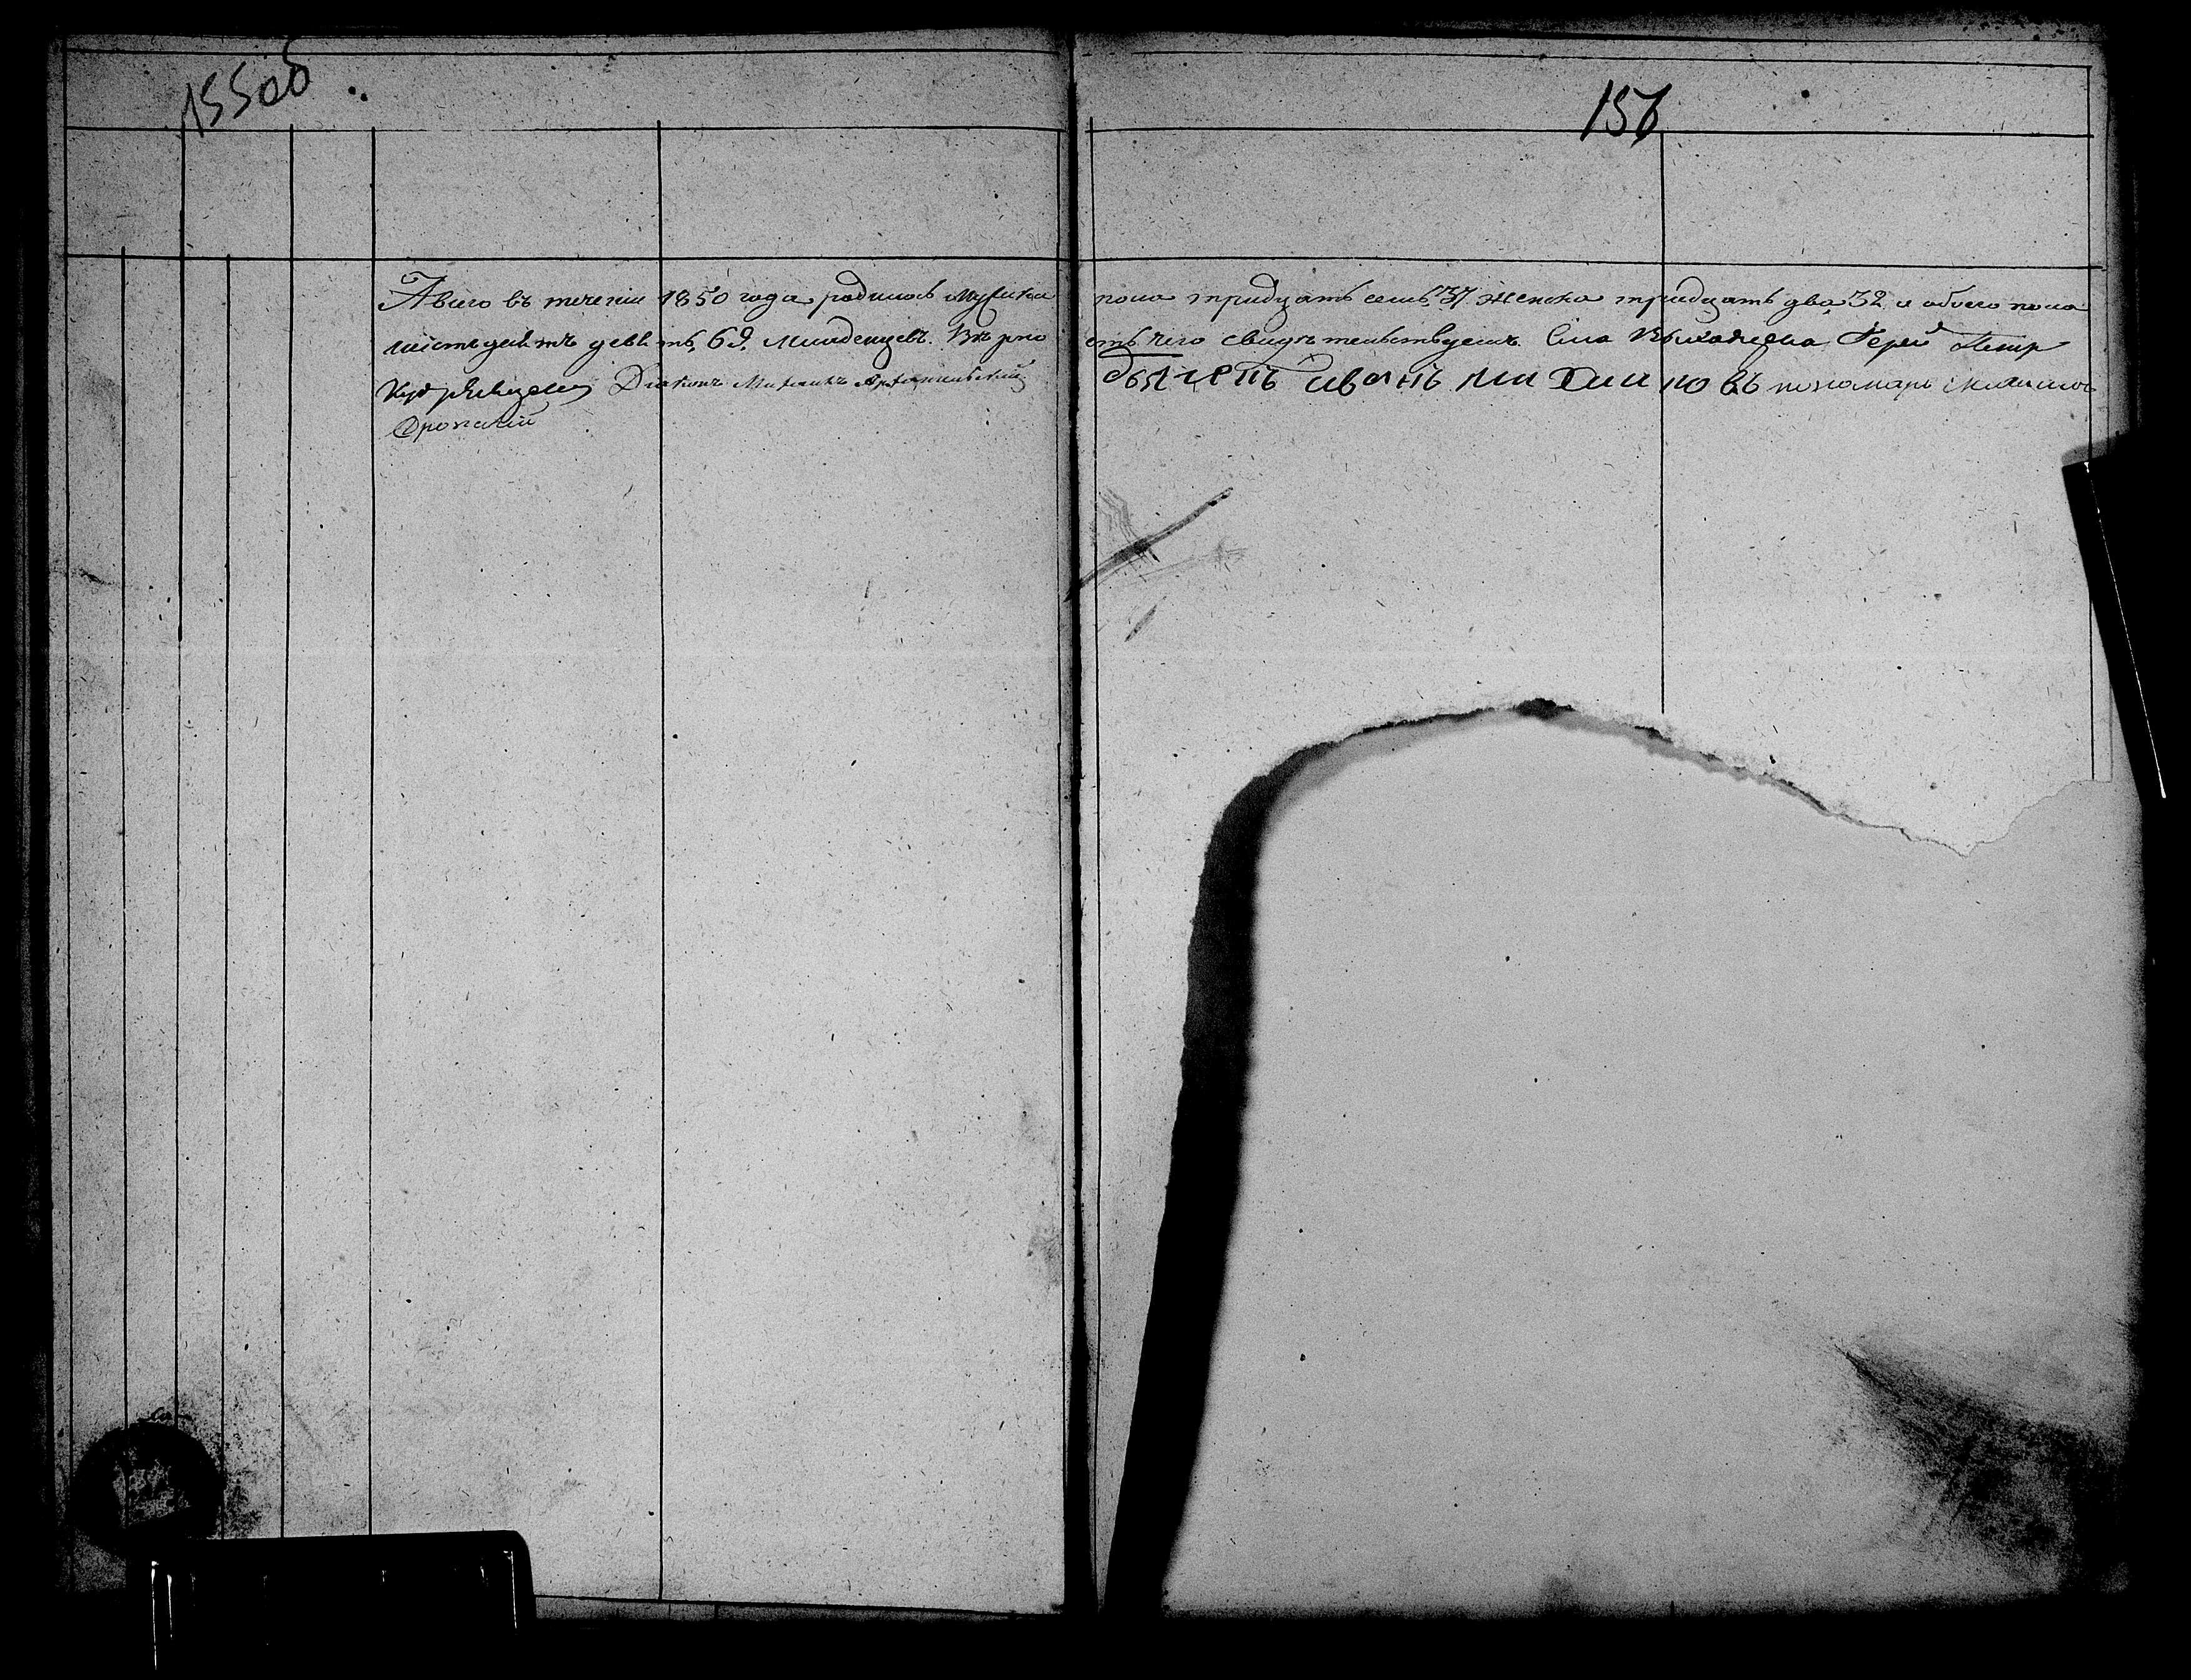 155об
156
А всего въ теченіи 1850 года родилось мужеска пола тридцать семь, 37, женска тридцать два, 32 и обоего пола
шестьдесятъ девять, 69, младенцевъ. Въ
чего свидѣтельствуемъ. Села Іерей Петр
Кудрявцевъ Діаконъ Михаилъ Архангельский дьячекъ иванъ пономарь